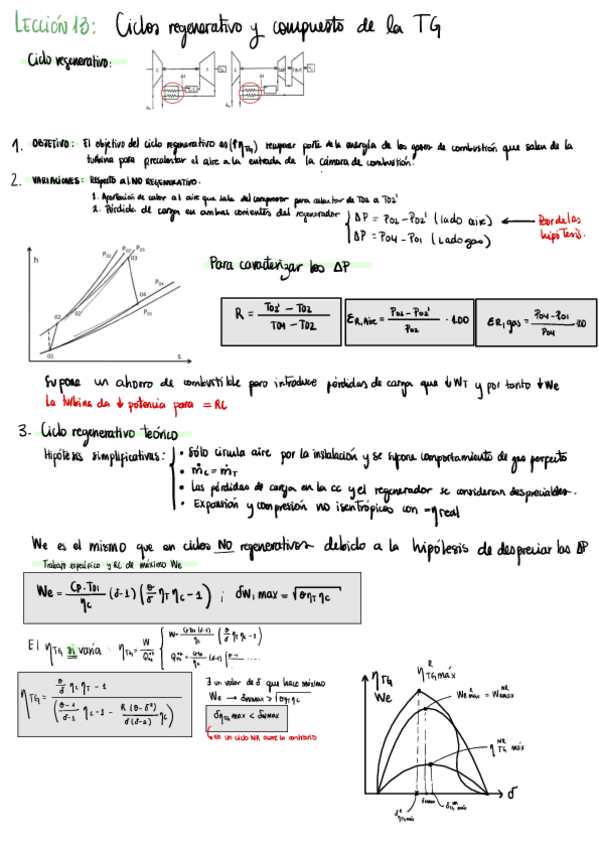 LECCIÓN 13: Ciclos regenerativo y compuesto de la TG
Ciclo regenerativo:
1. OBJETIVO: El objetivo del ciclo regenerativo es (↑η_TG) recuperar parte de la energía de los gases de combustión que salen de la
turbina para precalentar el aire a la entrada de la cámara de combustión.
2. VARIACIONES: Respecto al NO REGENERATIVO.
1. Aportación de calor al aire que sale del compresor para calentar de T02 a T02'
2. Pérdida de carga en ambas corrientes del regenerador
ΔP = P02 - P02' (lado aire)
ΔP = P04 - P01 (lado gas)
← Por de las hipótesis.
h
P02
P02'
P03
03
P04
04
P01
02
02'
01
s
Para caracterizar los ΔP
R = (T02' - T02) / (T04 - T02)
ER, Aire = (P02 - P02') / P02 · 100
ER, gas = (P04 - P01) / P04 · 100
Supone un ahorro de combustible pero introduce pérdidas de carga que ↓WT y por tanto ↓We
La turbina da ↓ potencia para = RC
3. Ciclo regenerativo teórico
Hipótesis simplificativas:
• Sólo circula aire por la instalación y se supone comportamiento de gas perfecto
• ṁc = ṁT
• Las pérdidas de carga en la cc y el regenerador se consideran despreciables.
• Expansión y compresión no isentrópicas con → η real
We es el mismo que en ciclos NO regenerativos debido a la hipótesis de despreciar los ΔP
Trabajo específico y RC de máximo We
We = (Cp·T01 / ηc) (δ-1) (θ/δ ηT ηc - 1) ; δW, max = √(θ ηT ηc)
El η_TG si varía: η_TG = W / Q
η_TG = (θ/δ ηc ηT - 1) / ((θ-1)/(δ-1) ηc - 1 - R(θ-δ²)/(δ(δ-1)) ηc)
∃ un valor de δ que hace máximo
We → δWmax = √(θ ηT ηc)
δη_TG max < δWmax
↳ en un ciclo NR ocurre lo contrario
η TG
We
η^R TG máx
We^R max = W^NR max
η^NR TG máx
δ